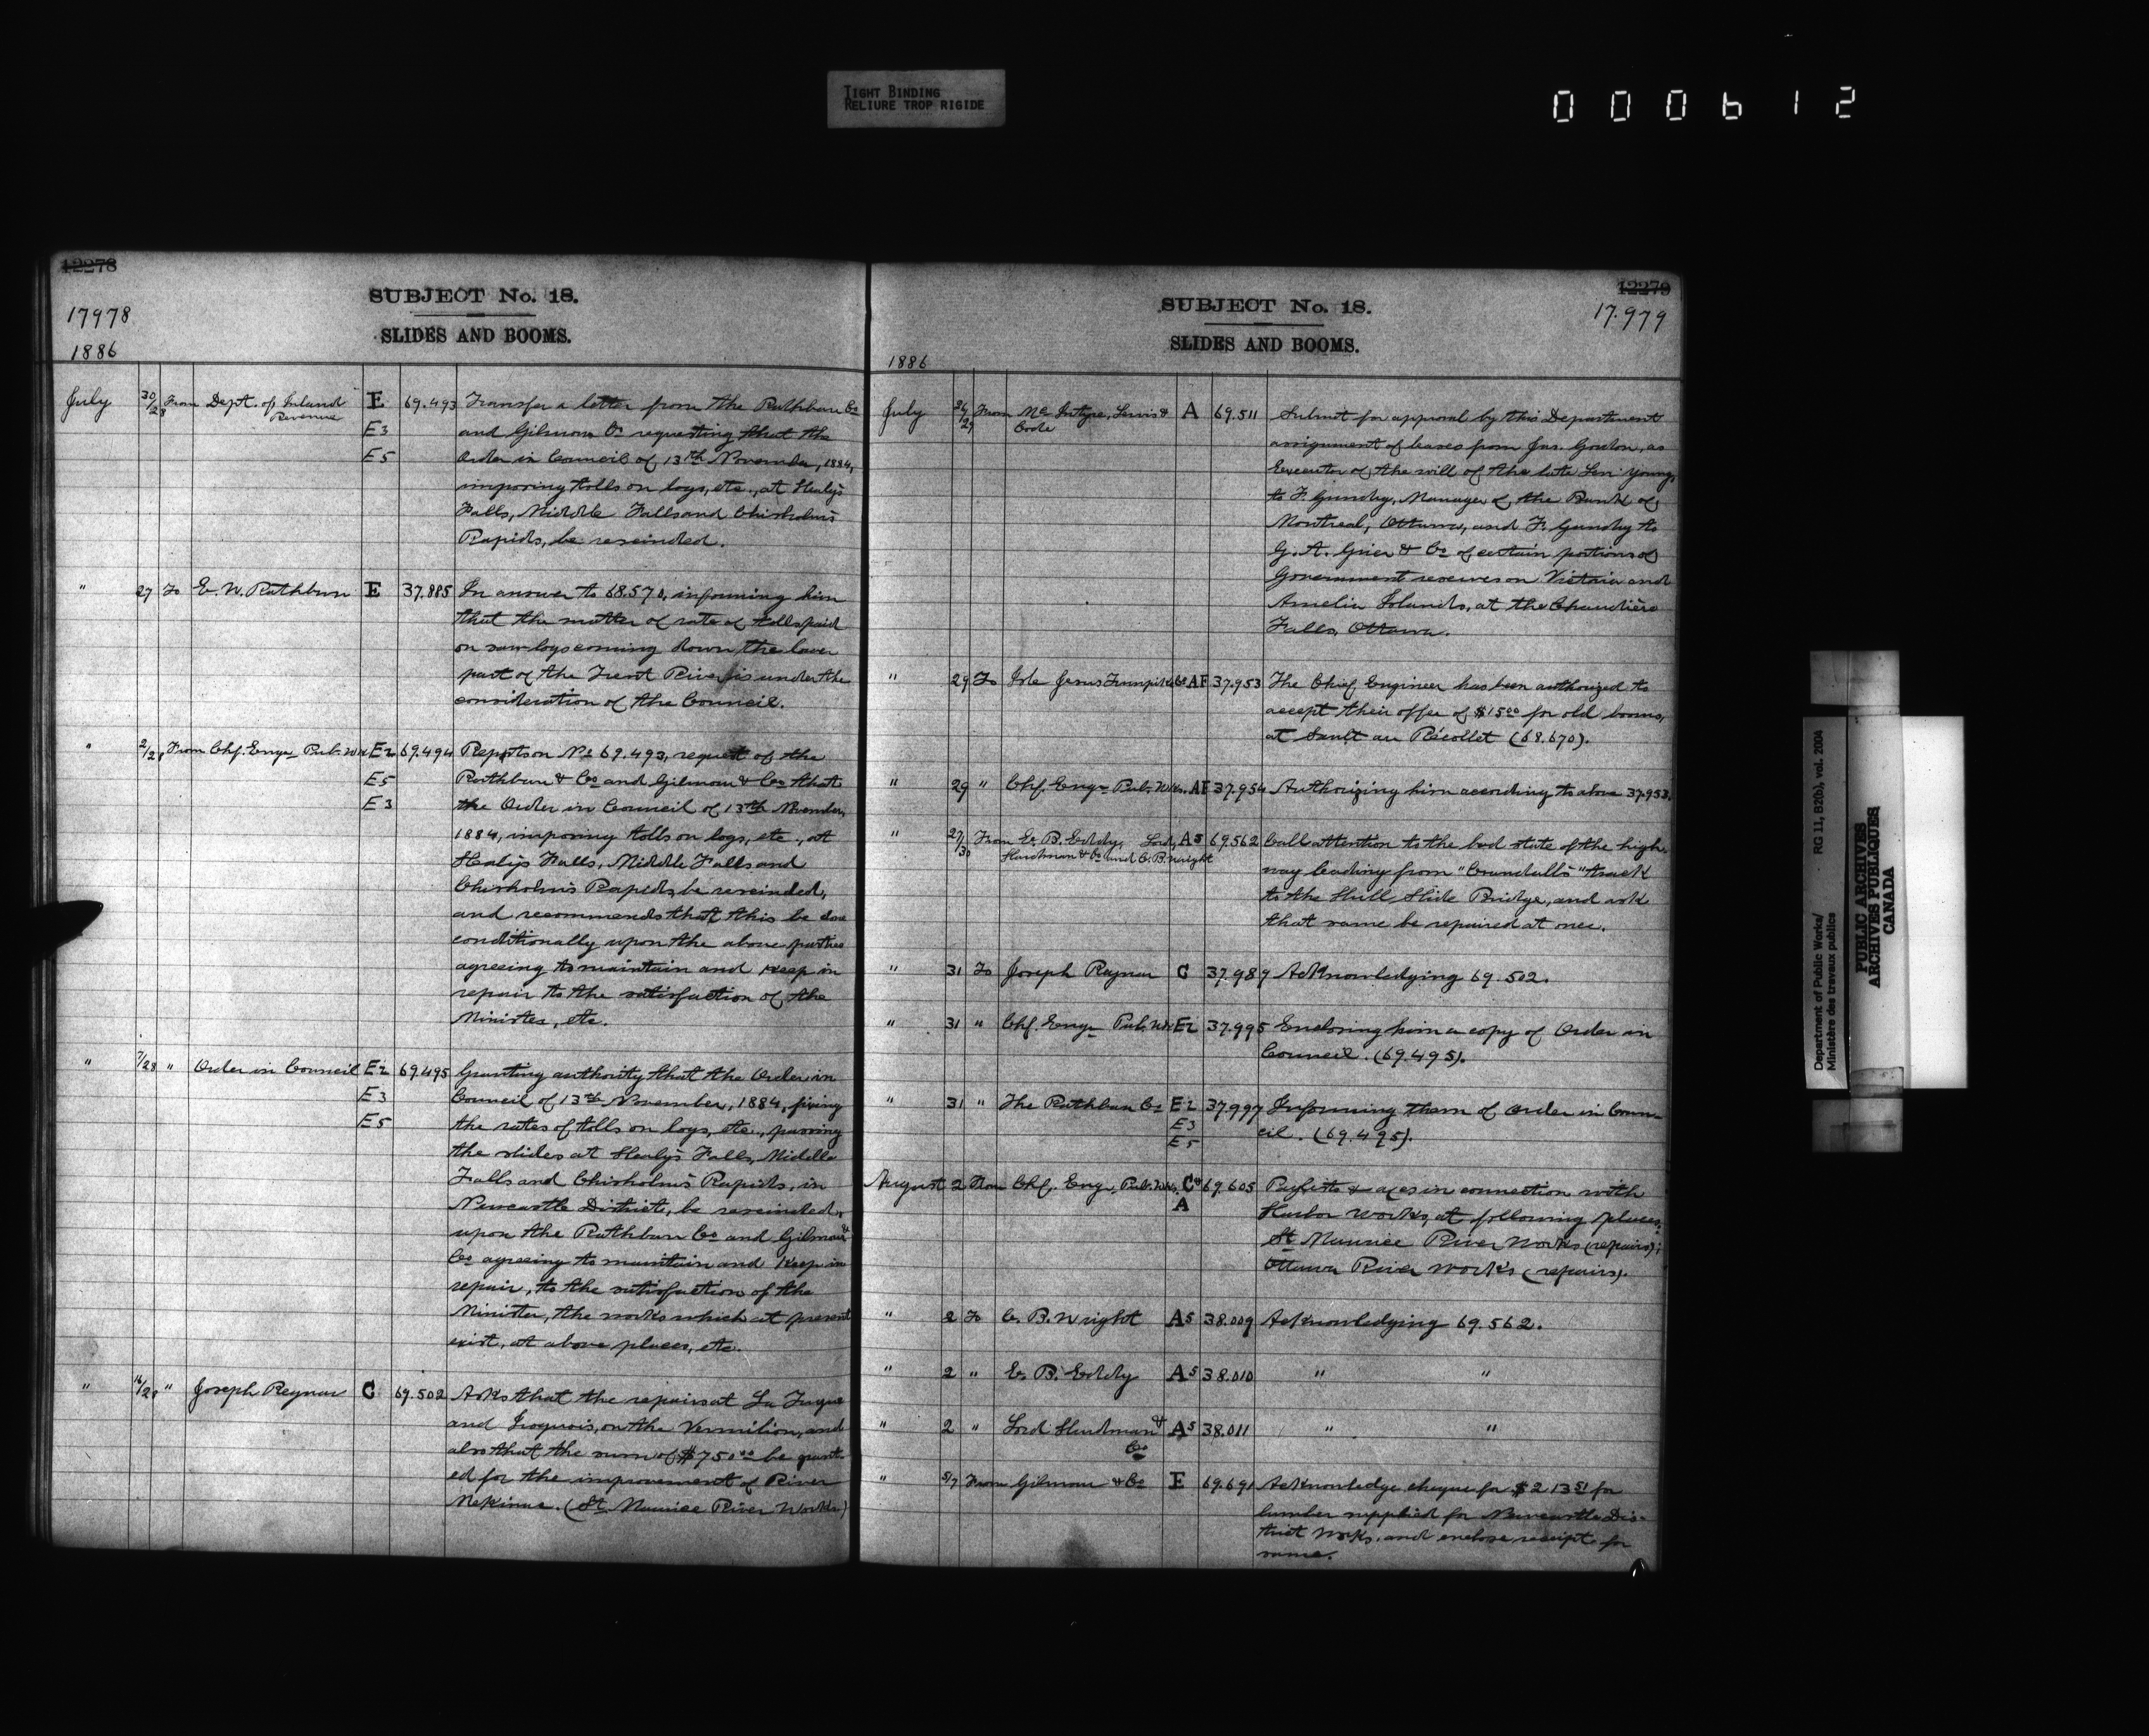 TIGHT BINDING
RELIURE TROP RIGIDE
000612
12278
17978
1886
SUBJECT No. 18.
SLIDES AND BOOMS.
July 30/28 From Dept. of Inland Revenue E 69.493 Transfer a letter from the Rathbun Co
E3 and Gilmour Co requesting that the
E5 Order in Council of 13th November, 1884,
imposing tolls on logs, etc., at Healy's
Falls, Middle Falls and Chisholm's
Rapids, be rescinded.
" 27 To E. W. Rathbun E 37.885 In answer to 68.570, informing him
that the matter of rate of tolls paid
on saw logs coming down the lower
part of the Trent River is under the
consideration of the Council.
" 2/28 From Chf. Engr Pub. Wks E2 69.494 Reports on No 69.493, request of the
E5 Rathbun & Co and Gilmour & Co that
E3 the Order in Council of 13th November,
1884, imposing tolls on logs, etc., at
Healy's Falls, Middle Falls and
Chisholm's Rapids, be rescinded,
and recommends that this be done
conditionally upon the above parties
agreeing to maintain and keep in
repair to the satisfaction of the
Minister, etc.
" 7/28 " Order in Council E2 69.495 Granting authority that the Order in
E3 Council of 13th November, 1884, fixing
E5 the rates of tolls on logs, etc., passing
the slides at Healy's Falls, Middle
Falls and Chisholm's Rapids, in
Newcastle District, be rescinded,
upon the Rathbun Co and Gilmour &
Co agreeing to maintain and keep in
repair, to the satisfaction of the
Minister, the works which at present
exist, at above places, etc.
" 16/28 " Joseph Reynar C 69.502 Asks that the repairs at La Tuque
and Iroquois, on the Vermilion, and
also that the sum of $750.00 be grant-
ed for the improvement of River
Mekinac. (St. Maurice River Works)
12279
17.979
SUBJECT No. 18.
SLIDES AND BOOMS.
1886
July 26/29 From McIntyre, Lewis & Code A 69.511 Submit for approval by this Department
assignment of leases from Jas. Gouton, as
Executor of the will of the late Levi Young,
to F. Gundry, Manager of the Bank of
Montreal, Ottawa, and F. Gundry to
G. A. Grier & Co of certain portions of
Government reserves on Victoria and
Amelia Islands, at the Chaudière
Falls, Ottawa.
" 29 To Isle Jesus Turnpike Co AF 37.953 The Chief Engineer has been authorized to
accept their offer of $15.00 for old booms,
at Sault au Récollet (68.670).
" 29 " Chf. Engr Pub. Wks. AF 37.954 Authorizing him according to above 37.953.
" 27/30 From E. B. Eddy, Lord, A5 69.562 Call attention to the bad state of the high-
Hurdman & Co and C. B. Wright
way leading from "Crandall's" track
to the Hull Slide Bridge, and ask
that same be repaired at once.
" 31 To Joseph Raynar C 37.989 Acknowledging 69.502.
" 31 " Chf. Engr Pub. Wks E2 37.995 Enclosing him a copy of Order in
Council. (69.495).
" 31 " The Rathbun Co E2 37.997 Informing them of Order in Coun-
E3
E5 cil. (69.495).
August 2 From Chf. Engr Pub. Wks. C& 69.605 in connection with
A Harbor Works, at following places:
St Maurice River Works (repairs);
Ottawa River Works (repairs).
" 2 To C. B. Wright A5 38.009 Acknowledging 69.562.
" 2 " E. B. Eddy A5 38.010 " "
" 2 " Lord Hurdman & Co A5 38.011 " "
" 5/7 From Gilmour & Co E 69.691 Acknowledge cheque for $213.51 for
lumber supplied for Newcastle Dis-
trict Works, and enclose receipt for
same.
Department of Public Works/ RG 11, B2(b), vol. 2004
Ministère des travaux publics
PUBLIC ARCHIVES
ARCHIVES PUBLIQUES
CANADA